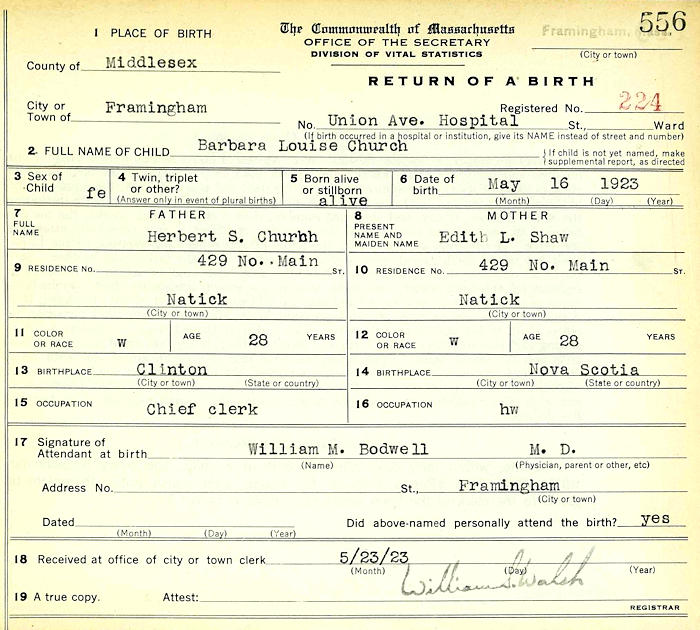 556
1 PLACE OF BIRTH The Commonwealth of Massachusetts Framingham, Mass.
OFFICE OF THE SECRETARY (City or town)
DIVISION OF VITAL STATISTICS
County of Middlesex
RETURN OF A BIRTH
City or Town of Framingham Registered No. 224
No. Union Ave. Hospital St., Ward
(If birth occurred in a hospital or institution, give its NAME instead of street and number)
2. FULL NAME OF CHILD Barbara Louise Church { If child is not yet named, make
supplemental report, as directed
3 Sex of Child fe 4 Twin, triplet or other? 5 Born alive or stillborn alive 6 Date of birth May 16 1923
(Answer only in event of plural births) (Month) (Day) (Year)
7 FATHER 8 MOTHER
FULL NAME Herbert S. Churhh PRESENT NAME AND MAIDEN NAME Edith L. Shaw
9 RESIDENCE No. 429 No. Main St. 10 RESIDENCE No. 429 No. Main St.
Natick Natick
(City or town) (City or town)
11 COLOR OR RACE w AGE 28 YEARS 12 COLOR OR RACE w AGE 28 YEARS
13 BIRTHPLACE Clinton 14 BIRTHPLACE Nova Scotia
(City or town) (State or country) (City or town) (State or country)
15 OCCUPATION Chief clerk 16 OCCUPATION hw
17 Signature of Attendant at birth William M. Bodwell M. D.
(Name) (Physician, parent or other, etc)
Address No. St., Framingham
(City or town)
Dated Did above-named personally attend the birth? yes
(Month) (Day) (Year)
18 Received at office of city or town clerk 5/23/23
(Month) (Day) (Year)
William S. Walsh
19 A true copy. Attest:
REGISTRAR